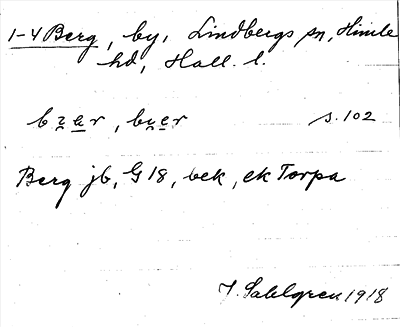 1-4 Berg, by, Lindbergs sn, Himle
hd, Hall. l.
s. 102
Berg jb, G 18, bek, ek Torpa
J. Sahlgren 1918